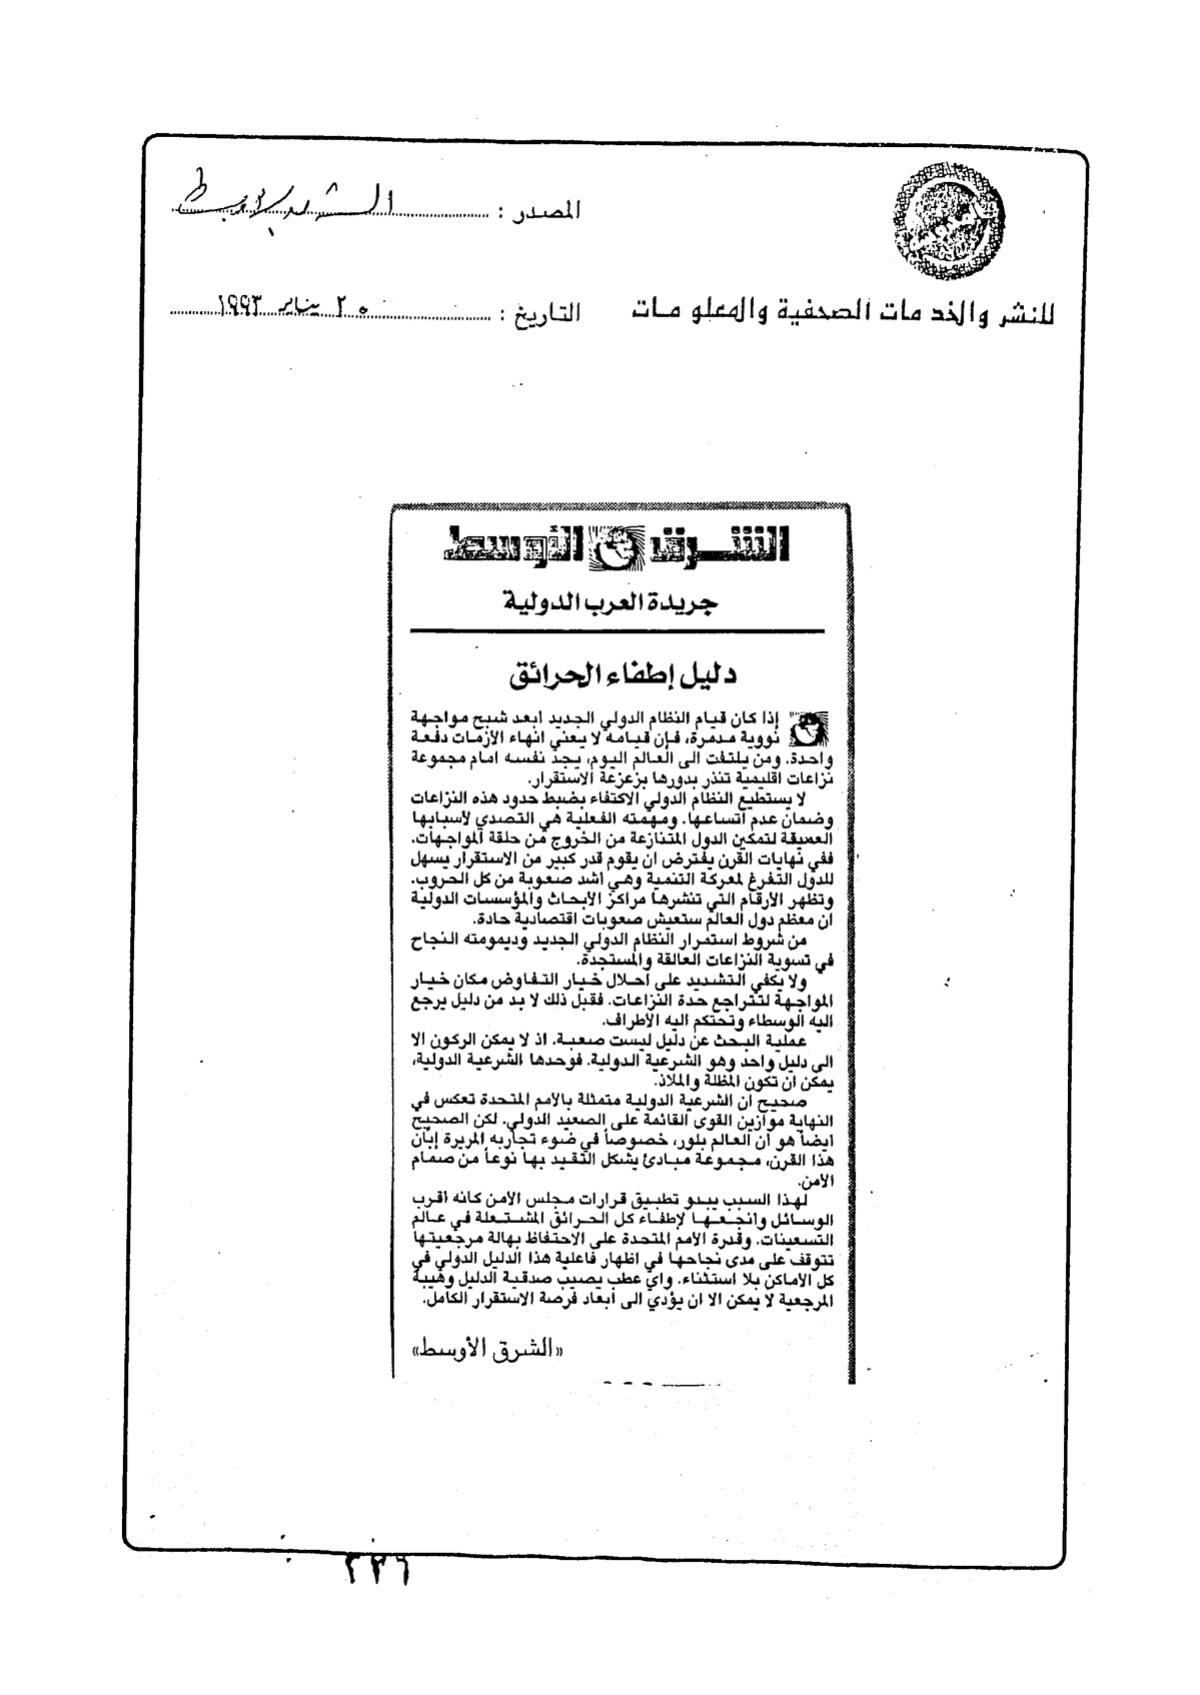 المصدر : الشرق الأوسط
للنشر والخدمات الصحفية والمعلومات
التاريخ : ٢٠ يناير ١٩٩٣
الشرق الأوسط
جريدة العرب الدولية
دليل إطفاء الحرائق
إذا كان قيام النظام الدولي الجديد ابعد شبح مواجهة
نووية مدمرة، فإن قيامه لا يعني انهاء الأزمات دفعة
واحدة. ومن يلتفت الى العالم اليوم، يجد نفسه امام مجموعة
نزاعات اقليمية تنذر بدورها بزعزعة الاستقرار.
لا يستطيع النظام الدولي الاكتفاء بضبط حدود هذه النزاعات
وضمان عدم اتساعها. ومهمته الفعلية هي التصدي لأسبابها
العميقة لتمكين الدول المتنازعة من الخروج من حلقة المواجهات.
ففي نهايات القرن يفترض ان يقوم قدر كبير من الاستقرار يسهل
للدول التفرغ لمعركة التنمية وهي اشد صعوبة من كل الحروب.
وتظهر الأرقام التي تنشرها مراكز الأبحاث والمؤسسات الدولية
ان معظم دول العالم ستعيش صعوبات اقتصادية حادة.
من شروط استمرار النظام الدولي الجديد وديمومته النجاح
في تسوية النزاعات العالقة والمستجدة.
ولا يكفي التشديد على احلال خيار التفاوض مكان خيار
المواجهة لتتراجع حدة النزاعات. فقبل ذلك لا بد من دليل يرجع
اليه الوسطاء وتحتكم اليه الأطراف.
عملية البحث عن دليل ليست صعبة. اذ لا يمكن الركون الا
الى دليل واحد وهو الشرعية الدولية. فوحدها الشرعية الدولية،
يمكن ان تكون المظلة والملاذ.
صحيح ان الشرعية الدولية متمثلة بالأمم المتحدة تعكس في
النهاية موازين القوى القائمة على الصعيد الدولي. لكن الصحيح
ايضاً هو ان العالم بلور، خصوصاً في ضوء تجاربه المريرة إبان
هذا القرن، مجموعة مبادئ يشكل التقيد بها نوعاً من صمام
الأمن.
لهذا السبب يبدو تطبيق قرارات مجلس الأمن كانه اقرب
الوسائل وانجعها لإطفاء كل الحرائق المشتعلة في عالم
التسعينات. وقدرة الأمم المتحدة على الاحتفاظ بهالة مرجعيتها
تتوقف على مدى نجاحها في اظهار فاعلية هذا الدليل الدولي في
كل الأماكن بلا استثناء. واي عطب يصيب صدقية الدليل وهيبة
المرجعية لا يمكن الا ان يؤدي الى ابعاد فرصة الاستقرار الكامل.
«الشرق الأوسط»